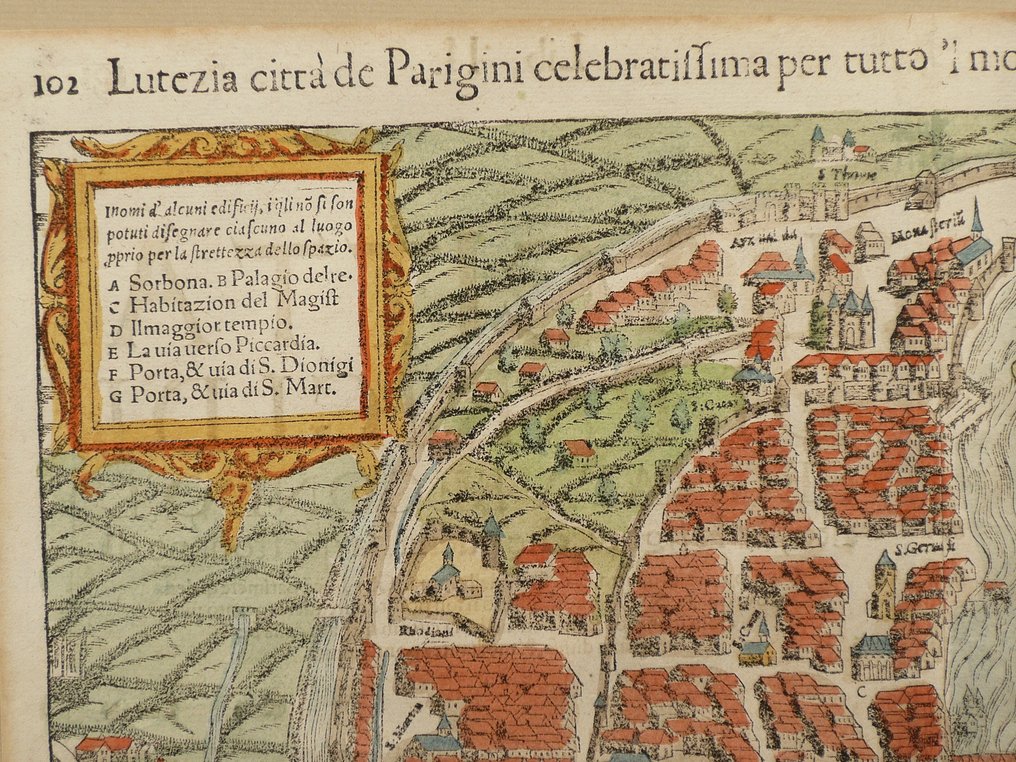 102 Lutezia città de Parigini celebratissima per tutto 'l mo
I nomi d' alcuni edificij, i qli nõ si son
potuti disegnare ciascuno al luogo
pprio per la strettezza dello spazio.
A Sorbona. B Palagio del re.
C Habitazion del Magist
D Il maggior tempio.
E La uia uerso Piccardia.
F Porta, & uia di S. Dionigi
G Porta, & uia di S. Mart.
S.
Monasteriũ
S.
S. Ger
Rhodiani
C
S.